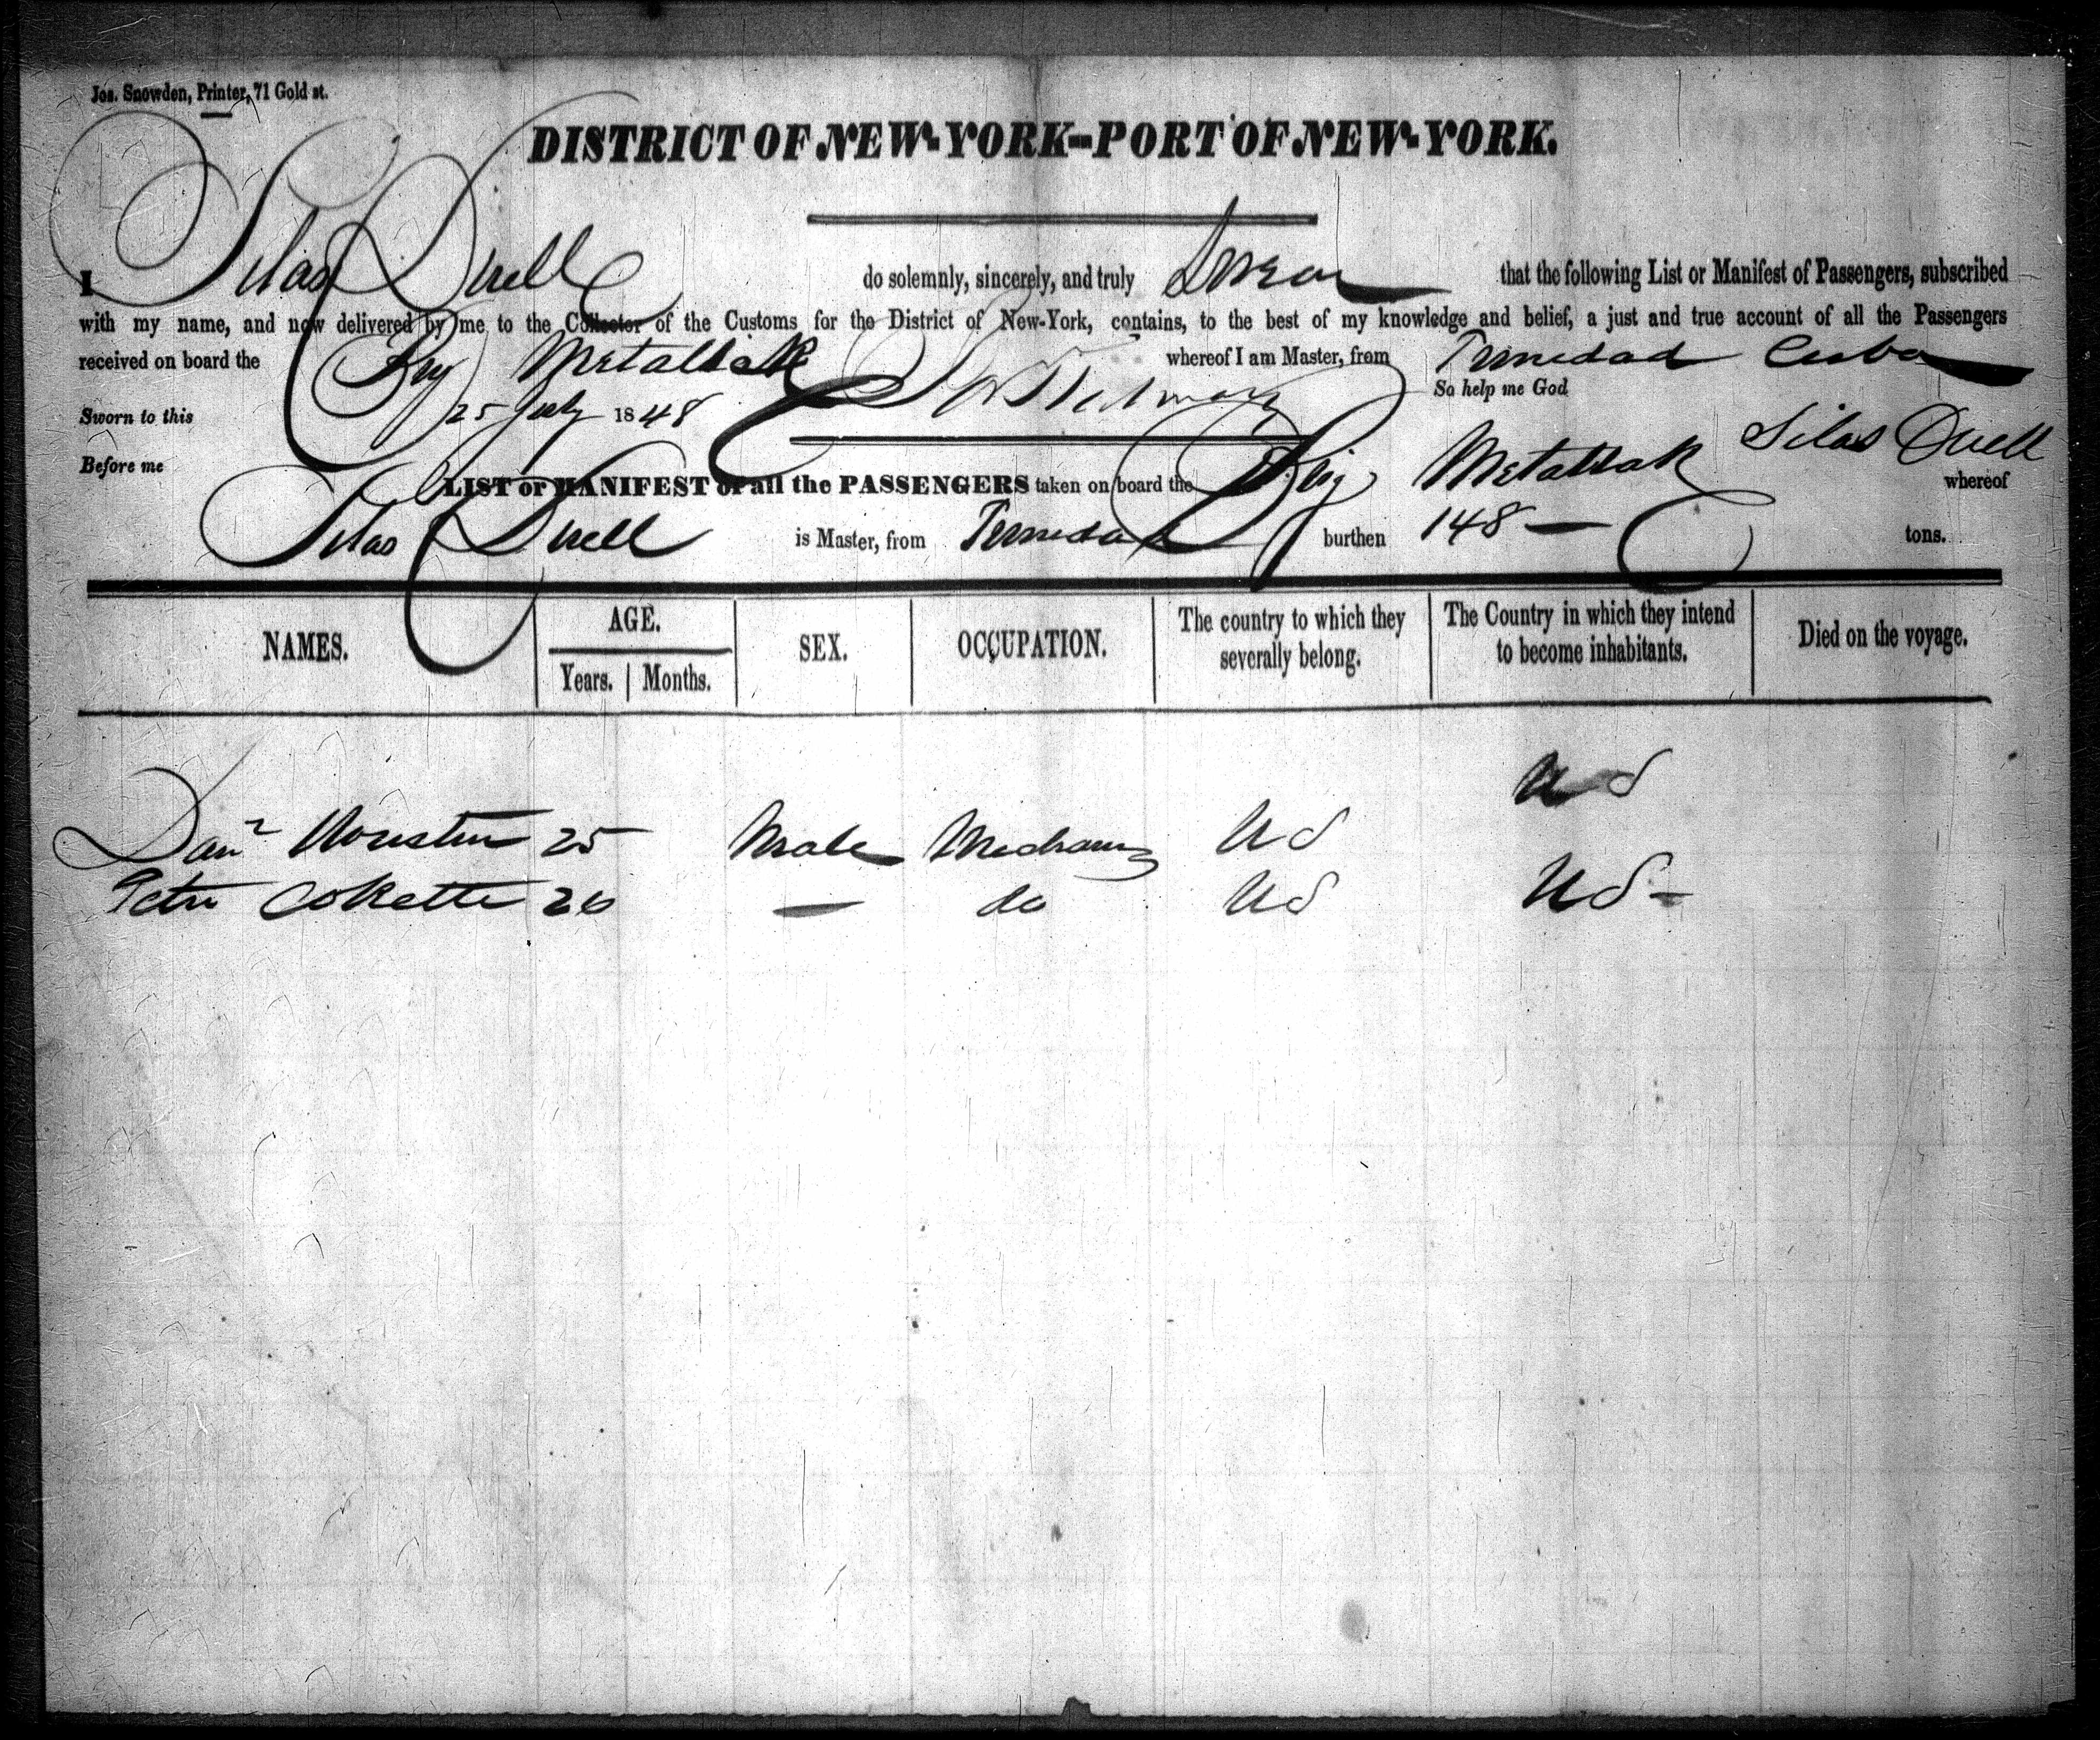 Jos. Snowden, Printer, 71 Gold st.
DISTRICT OF NEW-YORK--PORT OF NEW-YORK.
I Silas Duell do solemnly, sincerely, and truly Swear that the following List or Manifest of Passengers, subscribed
with my name, and now delivered by me to the Collector of the Customs for the District of New-York, contains, to the best of my knowledge and belief, a just and true account of all the Passengers
received on board the Brig Metallak whereof I am Master, from Trinidad Cuba
So help me God
Sworn to this 25 July 1848
Before me Silas Duell
LIST or MANIFEST of all the PASSENGERS taken on board the Brig Metallak whereof
Silas Duell is Master, from Trinidad burthen 148 tons.
NAMES. AGE. SEX. OCCUPATION. The country to which they severally belong. The Country in which they intend to become inhabitants. Died on the voyage.
Years. Months.
Danl Houston 25 Male Mechanic US US
Peter 26 — do US US